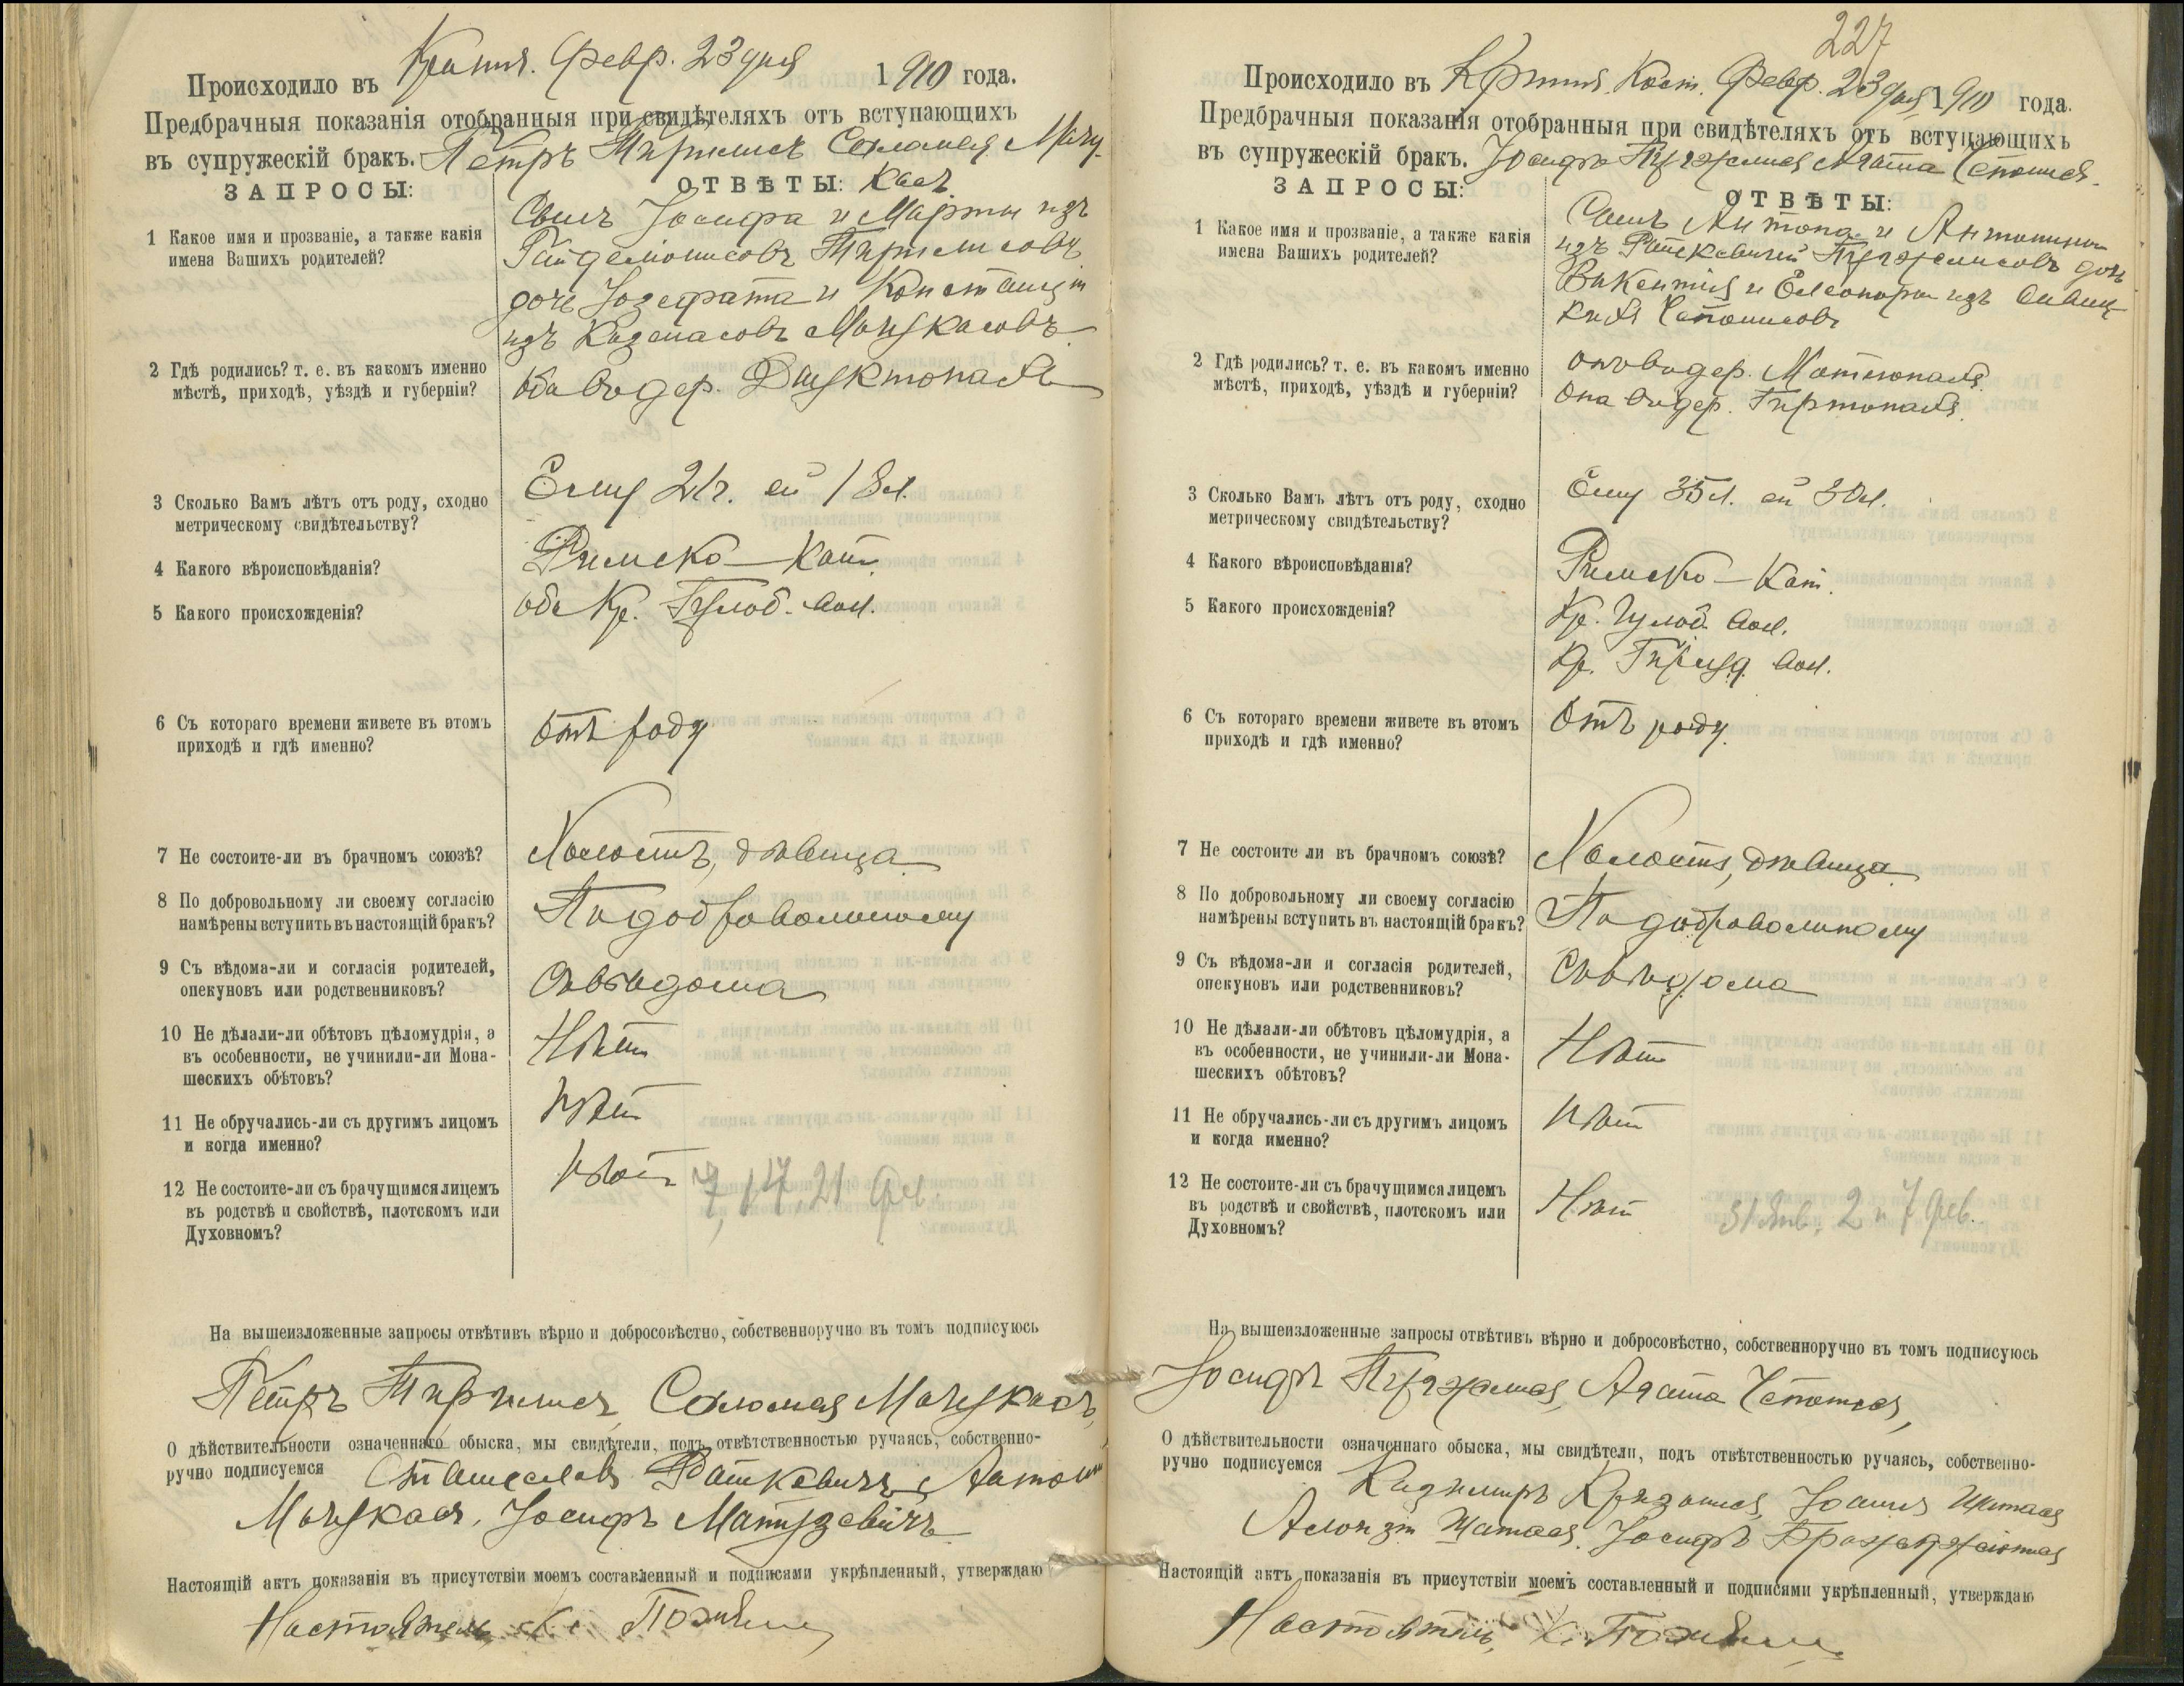 Происходило въ Крътин. Февр. 23 дня 1910 года.
Предбрачныя показанія отобранныя при свидѣтеляхъ отъ вступающихъ
въ супружескій бракъ. Петръ Соломея
ЗАПРОСЫ:
ОТВѢТЫ:
1 Какое имя и прозваніе, а также какія
имена Вашихъ родителей?
Сынъ Іосифа и Марты изъ
дочь Іозефата и Констанціи
изъ Мачукасовъ
2 Гдѣ родились? т. е. въ какомъ именно
мѣстѣ, приходѣ, уѣздѣ и губерніи?
Оба въ дер.
3 Сколько Вамъ лѣтъ отъ роду, сходно
метрическому свидѣтельству?
Ему 21 г. ей 18 л.
4 Какого вѣроисповѣданія?
Римско-Кат.
5 Какого происхожденія?
Оба Кр. вол.
6 Съ котораго времени живете въ этомъ
приходѣ и гдѣ именно?
Отъ роду
7 Не состоите-ли въ брачномъ союзѣ?
Холостъ, дѣвица
8 По добровольному ли своему согласію
намѣрены вступить въ настоящій бракъ?
По добровольному
9 Съ вѣдома-ли и согласія родителей,
опекуновъ или родственниковъ?
Съ вѣдома
10 Не дѣлали-ли обѣтовъ цѣломудрія, а
въ особенности, не учинили-ли Мона-
шескихъ обѣтовъ?
Нѣтъ
11 Не обручались-ли съ другимъ лицомъ
и когда именно?
Нѣтъ
12 Не состоите-ли съ брачущимся лицемъ
въ родствѣ и свойствѣ, плотскомъ или
Духовномъ?
Нѣтъ
7, 14, 21 Фев.
На вышеизложенные запросы отвѣтивъ вѣрно и добросовѣстно, собственноручно въ томъ подписуюсь
Петръ Соломея Мачукасъ,
О дѣйствительности означеннаго обыска, мы свидѣтели, подъ отвѣтственностью ручаясь, собственно-
ручно подписуемся Станиславъ Раткевичъ, Антонъ
Мачукасъ, Іосифъ Матузевичъ
Настоящій актъ показанія въ присутствіи моемъ составленный и подписями укрѣпленный, утверждаю
Настоятель К.
227
Происходило въ Кост. Февр. 23 дня 1910 года.
Предбрачныя показанія отобранныя при свидѣтеляхъ отъ вступающихъ
въ супружескій бракъ. Іосифъ Агата
ЗАПРОСЫ:
ОТВѢТЫ:
1 Какое имя и прозваніе, а также какія
имена Вашихъ родителей?
Сынъ Антона и Антонины
изъ дочь
Викентія и Елеоноры изъ
2 Гдѣ родились? т. е. въ какомъ именно
мѣстѣ, приходѣ, уѣздѣ и губерніи?
Онъ въ дер.
Она въ дер.
3 Сколько Вамъ лѣтъ отъ роду, сходно
метрическому свидѣтельству?
Ему 35 л. ей 30 л.
4 Какого вѣроисповѣданія?
Римско-Кат.
5 Какого происхожденія?
Кр. вол.
Кр. вол.
6 Съ котораго времени живете въ этомъ
приходѣ и гдѣ именно?
Отъ роду.
7 Не состоите ли въ брачномъ союзѣ?
Холостъ, дѣвица
8 По добровольному ли своему согласію
намѣрены вступить въ настоящій бракъ?
По добровольному
9 Съ вѣдома-ли и согласія родителей,
опекуновъ или родственниковъ?
Съ вѣдома
10 Не дѣлали-ли обѣтовъ цѣломудрія, а
въ особенности, не учинили-ли Мона-
шескихъ обѣтовъ?
Нѣтъ
11 Не обручались-ли съ другимъ лицомъ
и когда именно?
Нѣтъ
12 Не состоите-ли съ брачущимся лицемъ
въ родствѣ и свойствѣ, плотскомъ или
Духовномъ?
Нѣтъ
31 Янв., 2 и 7 Фев.
На вышеизложенные запросы отвѣтивъ вѣрно и добросовѣстно, собственноручно въ томъ подписуюсь
Іосифъ Агата
О дѣйствительности означеннаго обыска, мы свидѣтели, подъ отвѣтственностью ручаясь, собственно-
ручно подписуемся Казимиръ
Іосифъ
Настоящій актъ показанія въ присутствіи моемъ составленный и подписями укрѣпленный, утверждаю
Настоятель К.